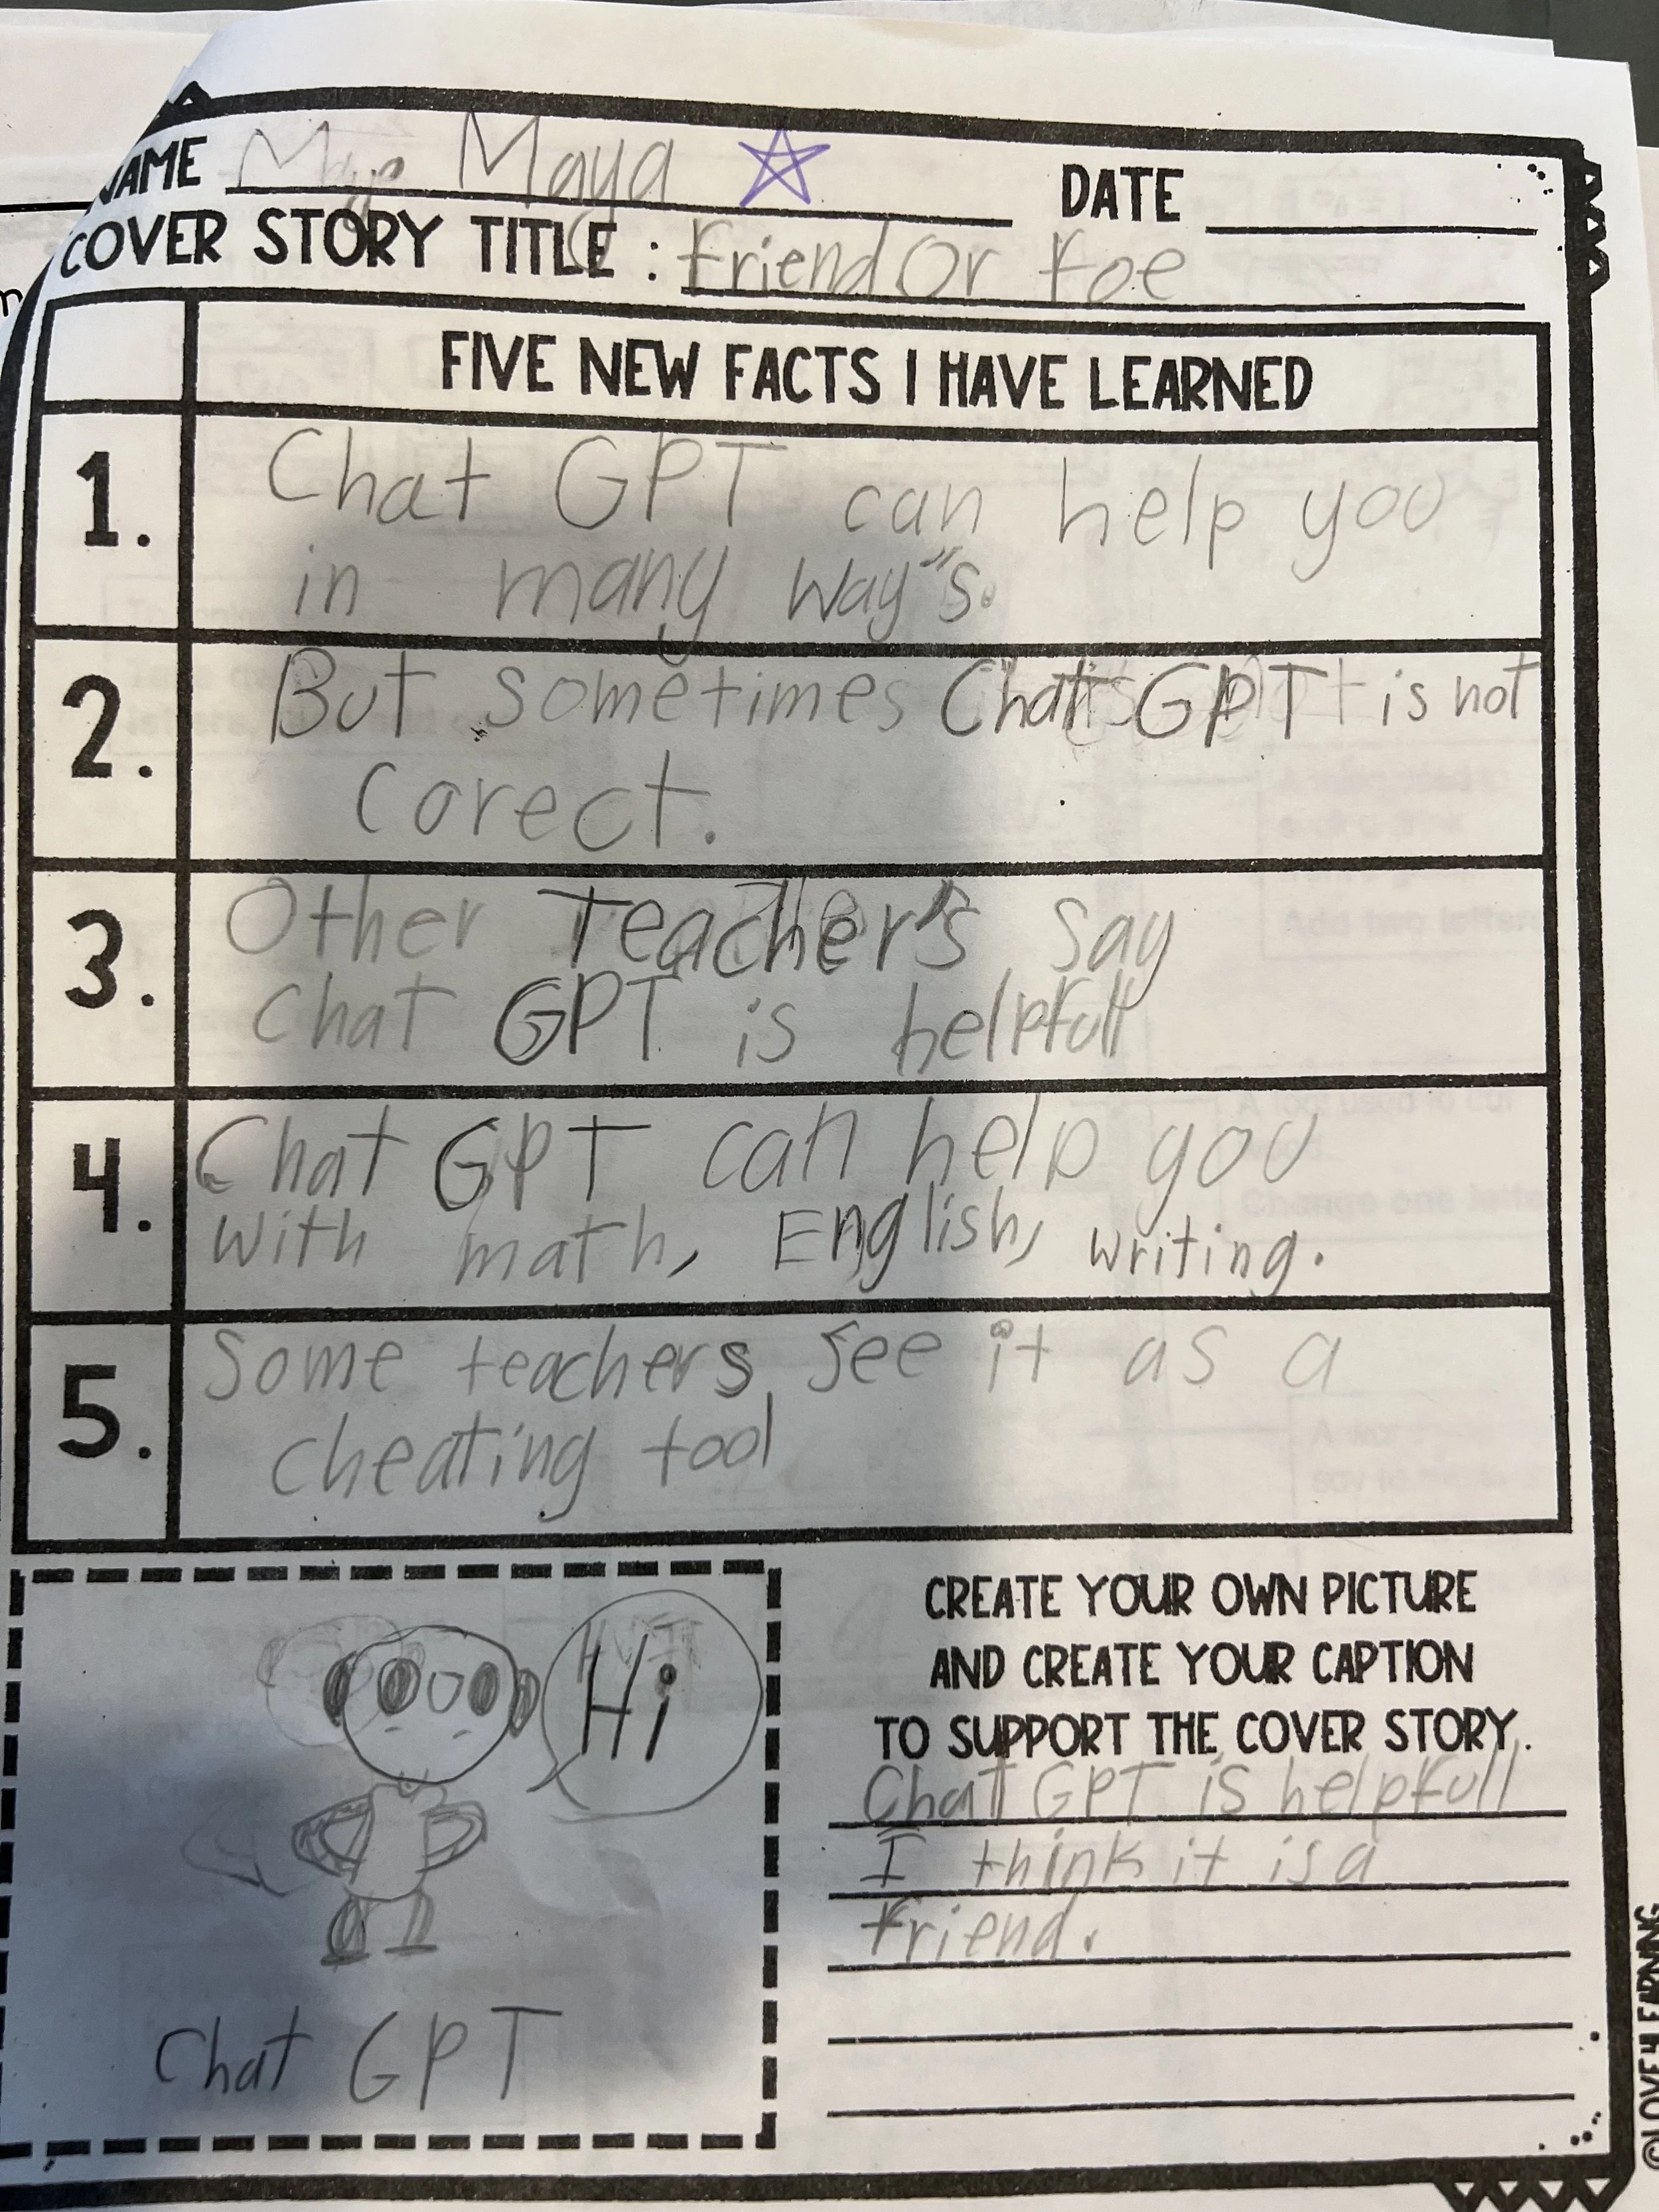 NAME Maya
DATE
COVER STORY TITLE : Friend Or Foe
FIVE NEW FACTS I HAVE LEARNED
1. Chat GPT can help you
in many way"s.
2. But sometimes Chat GPT is not
corect.
3. Other Teacher's say
Chat GPT is helpfull
4. Chat GPT can help you
with math, English, writing.
5. Some teachers see it as a
cheating tool
Hi
Chat GPT
CREATE YOUR OWN PICTURE
AND CREATE YOUR CAPTION
TO SUPPORT THE COVER STORY.
Chat GPT is helpfull
I think it is a
friend.
©LOVE4LEARNING